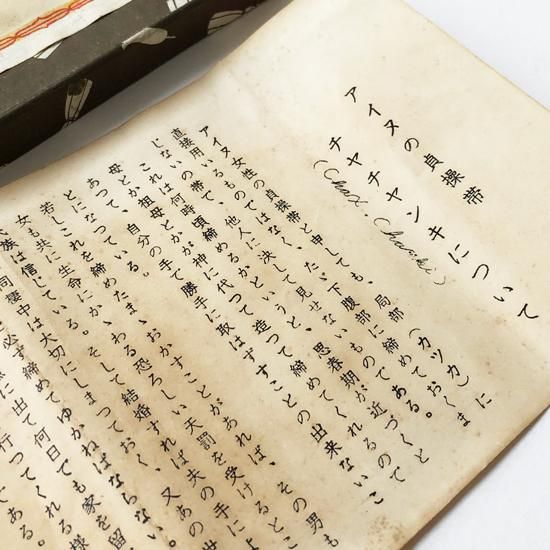 アイヌの貞操帯
チヤチヤンキについて
アイヌ女性の貞操帯と申しても、局部(カツカ)に
直接用いるものではなく、たゞ下腹部に締めておくま
じないの帯で、他人に決して見せないものである。
これは何時頃締めるかというと、思春期が近づくと
母とか、祖母とかが神に代つて造つて締めてくれるので
あつて、自分の手で勝手に取はずすことの出来ないこ
とになつている。
若しこれを締めたまゝ、おかすことがあれば、その男も
女も共に生命にかゝわる恐ろしい天罰を受けるとこ
族は信じている。そして結婚すれば夫の手によ
同棲中は大切にしまつておく、又あの世
必ず締めてゆかねばならない。
に出て何日でも家を留
行つてくれる様
である。